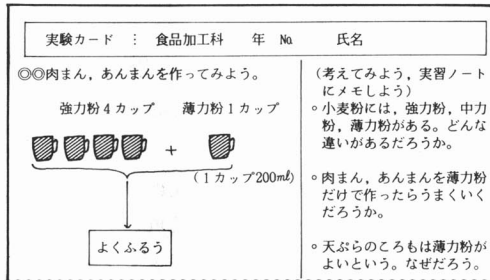 実験カード : 食品加工科 年 No. 氏名
◎◎肉まん，あんまんを作ってみよう。
強力粉4カップ 薄力粉1カップ
+
(1カップ200ml)
よくふるう
(考えてみよう，実習ノート
にメモしよう)
○小麦粉には，強力粉，中力
粉，薄力粉がある。どんな
違いがあるだろうか。
○肉まん，あんまんを薄力粉
だけで作ったらうまくいく
だろうか。
○天ぷらのころもは薄力粉が
よいという。なぜだろう。